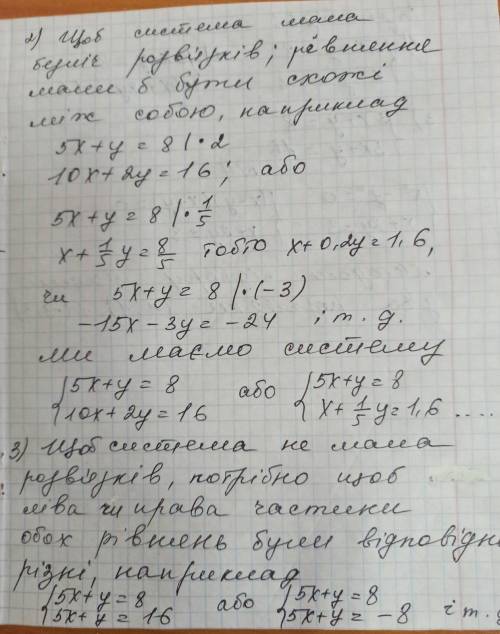 2) Щоб система мала
безліч розв'язків; рівняння
мали б бути схожі
між собою, наприклад
5x+y=8 |·2
10x+2y=16; або
5x+y=8 |·1/5
x+1/5y=8/5 тобто x+0,2y=1,6,
чи 5x+y=8 |·(-3)
-15x-3y=-24 і т. д.
Ми маємо систему
{5x+y=8 або {5x+y=8
{10x+2y=16 {x+1/5y=1,6 ....
3) Щоб система не мала
розв'язків, потрібно щоб
ліва чи права частини
обох рівнянь були відповідн
різні, наприклад
{5x+y=8 або {5x+y=8
{5x+y=16 {5x+y=-8 і т.